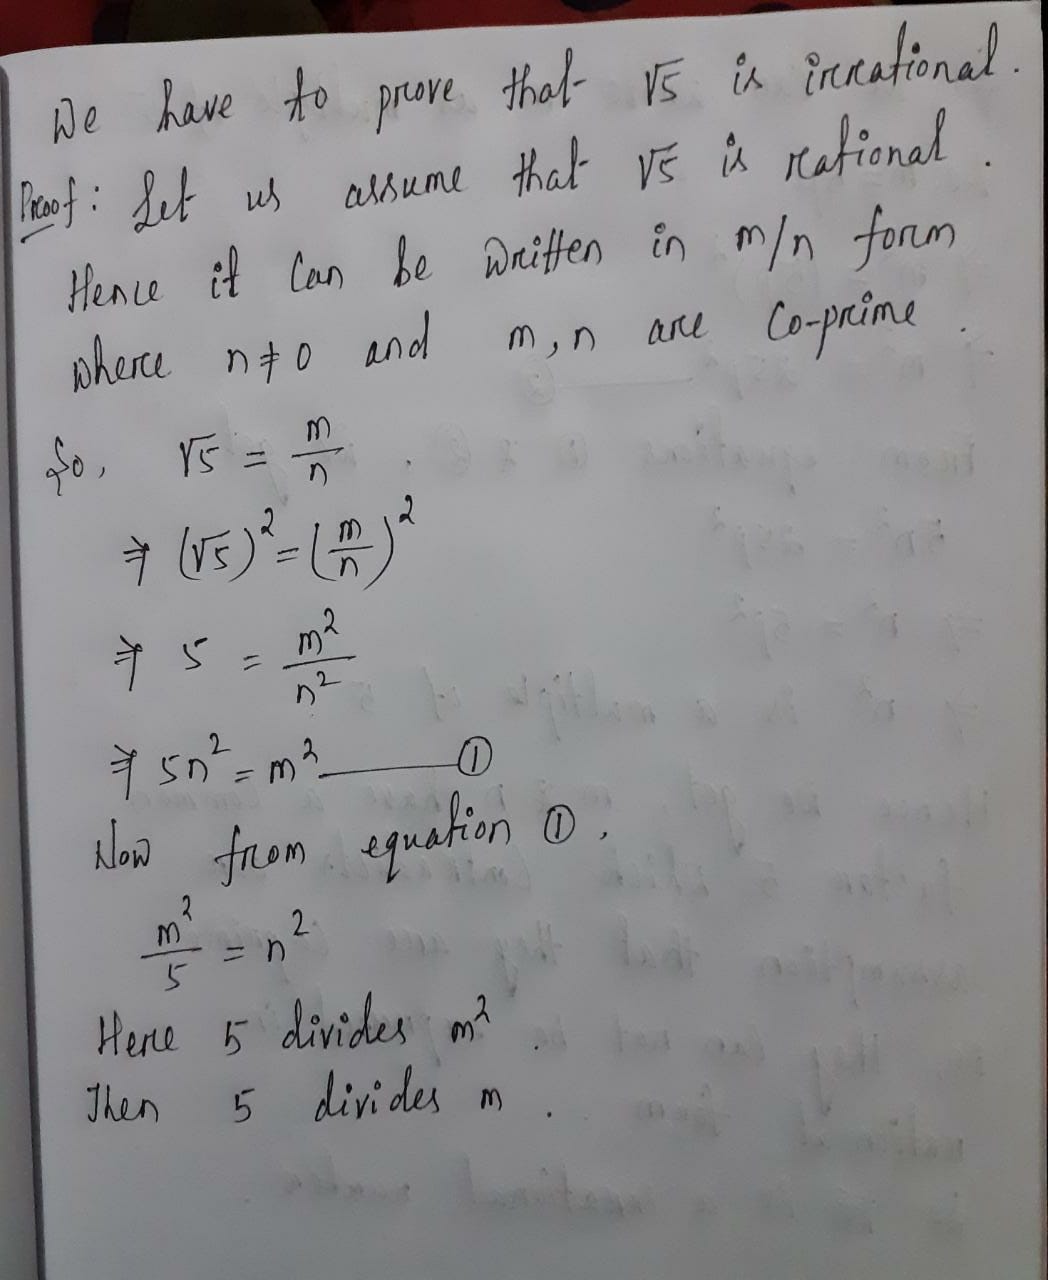 We have to prove that √5 is irrational.
Proof: Let us assume that √5 is rational.
Hence it can be written in m/n form
where n≠0 and m,n are co-prime.
So, √5 = m/n.
⇒ (√5)² = (m/n)²
⇒ 5 = m²/n²
⇒ 5n² = m² ——— ①
Now from equation ①,
m²/5 = n²
Here 5 divides m².
Then 5 divides m.